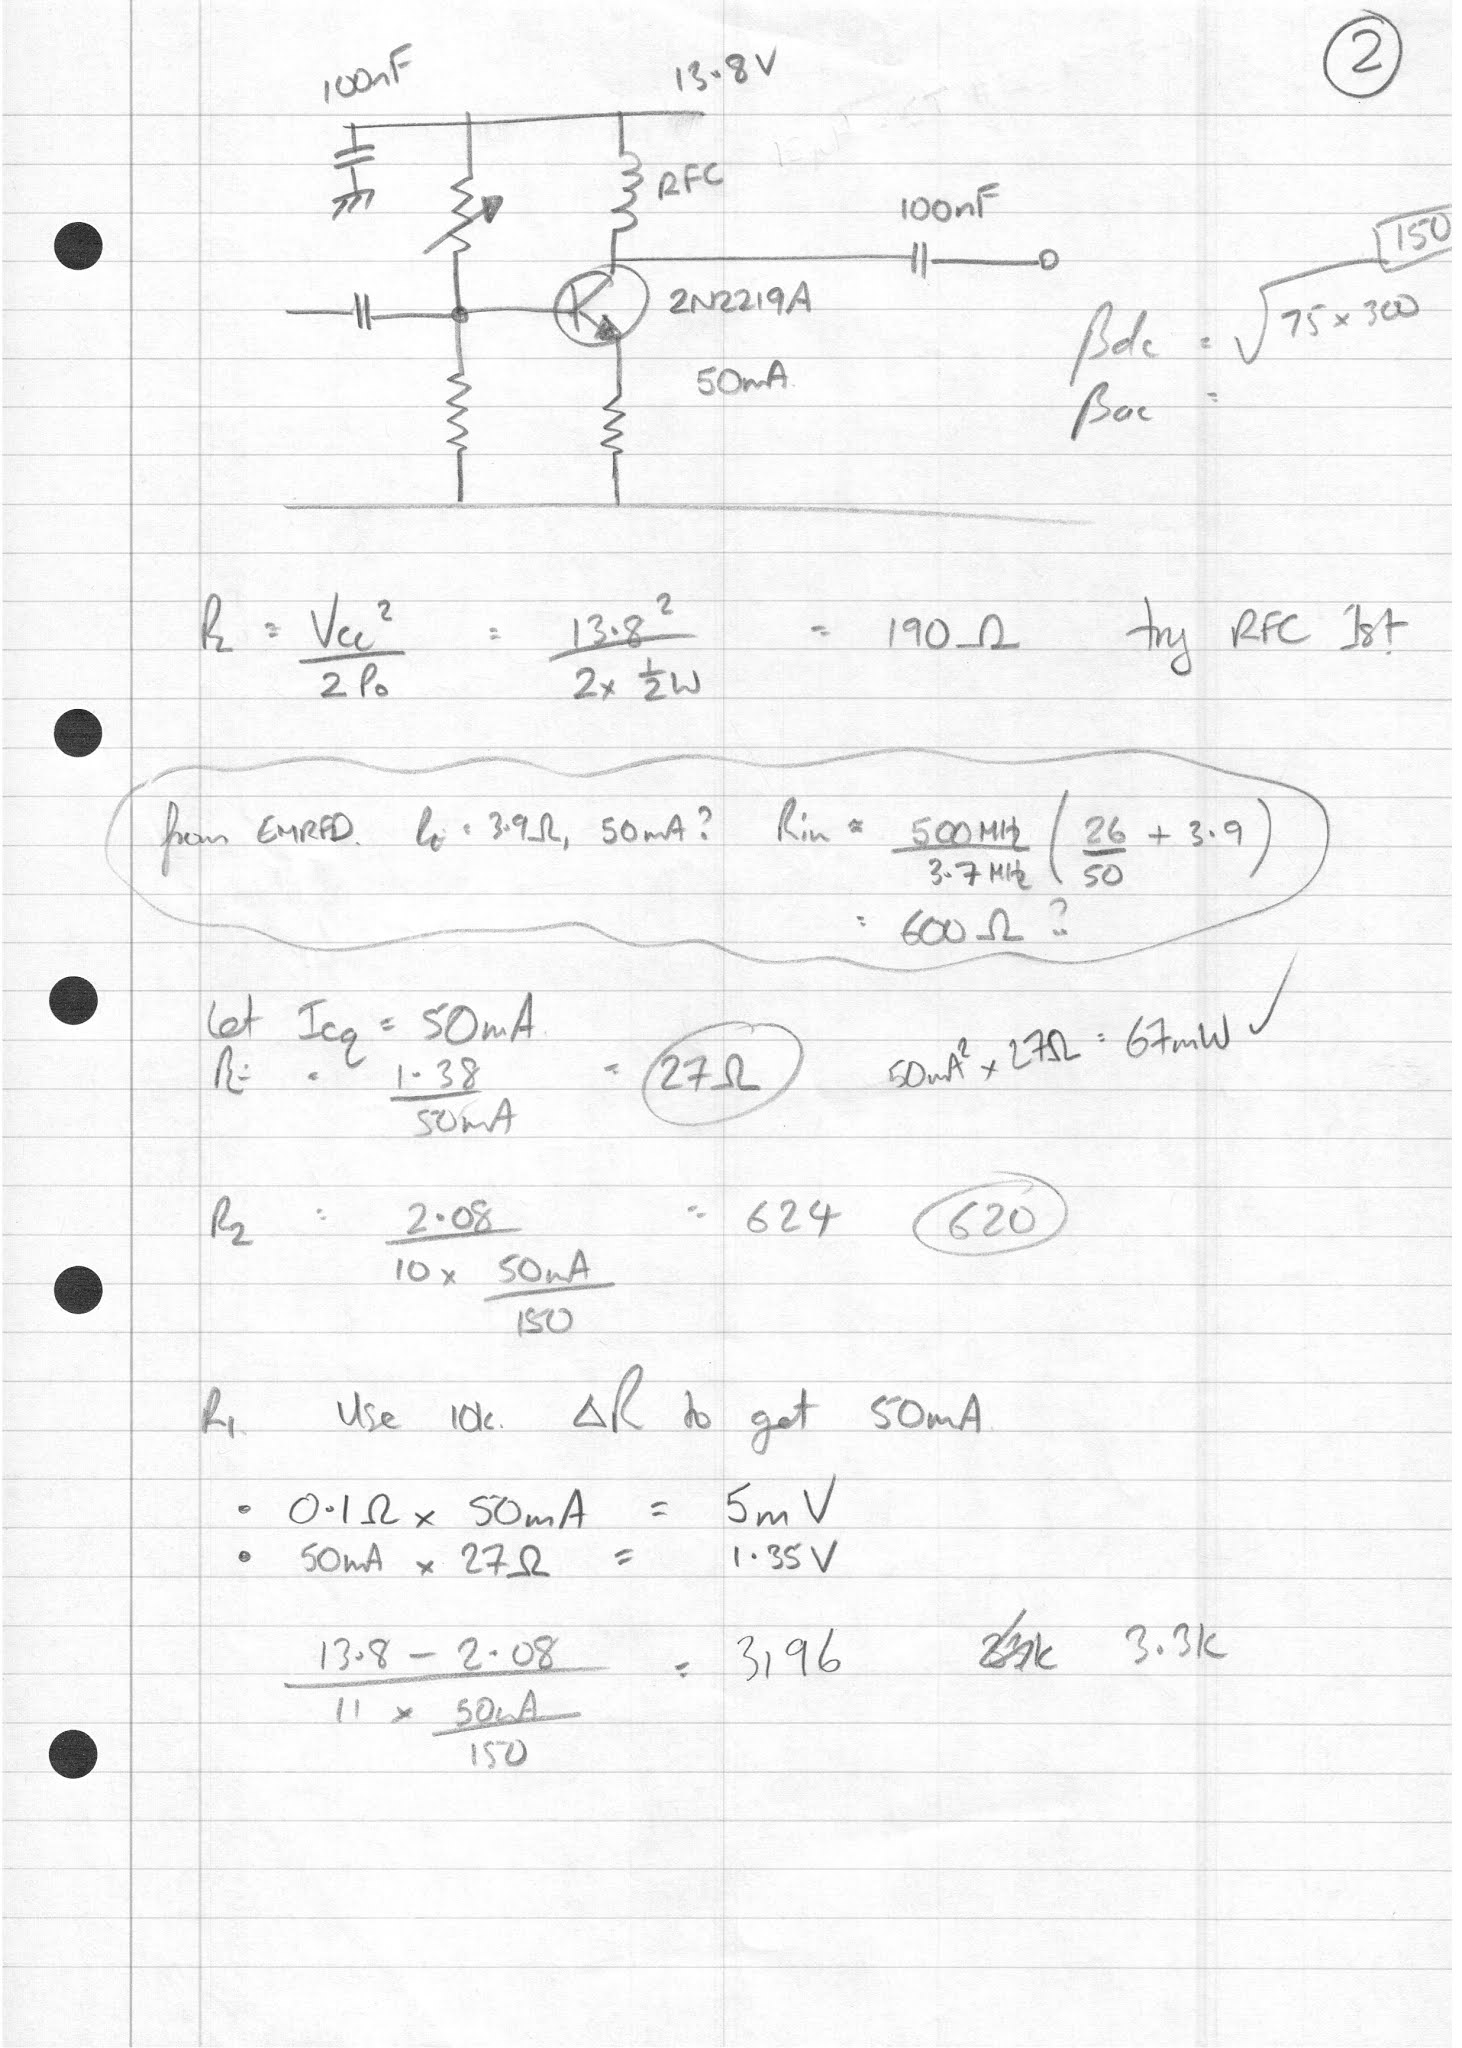 2
100nF
13.8V
RFC
100nF
2N2219A
50mA.
150
βdc = √75 × 300
βac =
RL = Vcc² / 2Po = 13.8² / 2 × ½W = 190Ω try RFC 1st
from EMRFD. Re = 3.9Ω, 50mA? Rin ≈ 500MHz / 3.7MHz ( 26 / 50 + 3.9 )
= 600Ω ?
Let Icq = 50mA.
RE = 1.38 / 50mA = 27Ω 50mA² × 27Ω = 67mW ✓
R2 = 2.08 / 10 × 50mA / 150 = 624 620
R1. Use 10k. ΔR to get 50mA
• 0.1Ω × 50mA = 5mV
• 50mA × 27Ω = 1.35V
13.8 − 2.08 / 11 × 50mA / 150 = 3,196 3.3k